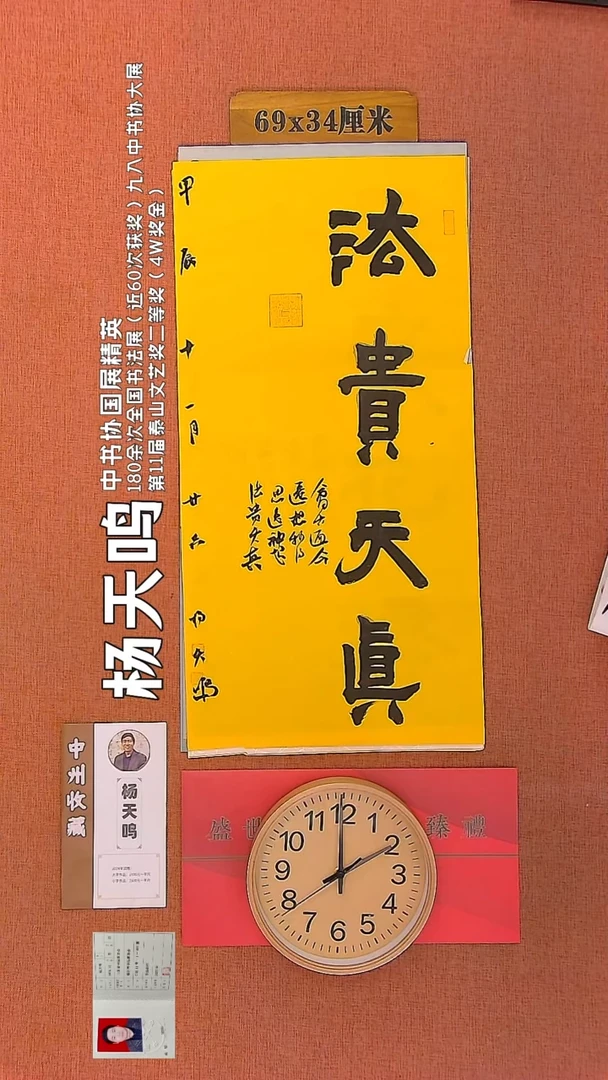 69x34厘米
法貴天真
會古通今
遷想妙得
思追神超
法贵天真
甲辰十一月廿六
杨天鸣
杨天鸣
中书协国展精英
180余次全国书法展（近60次获奖）九八中书协大展
第11届泰山文艺奖二等奖（4W奖金）
杨天鸣
盛世
臻禮
12
1
2
3
4
5
6
7
8
9
10
11